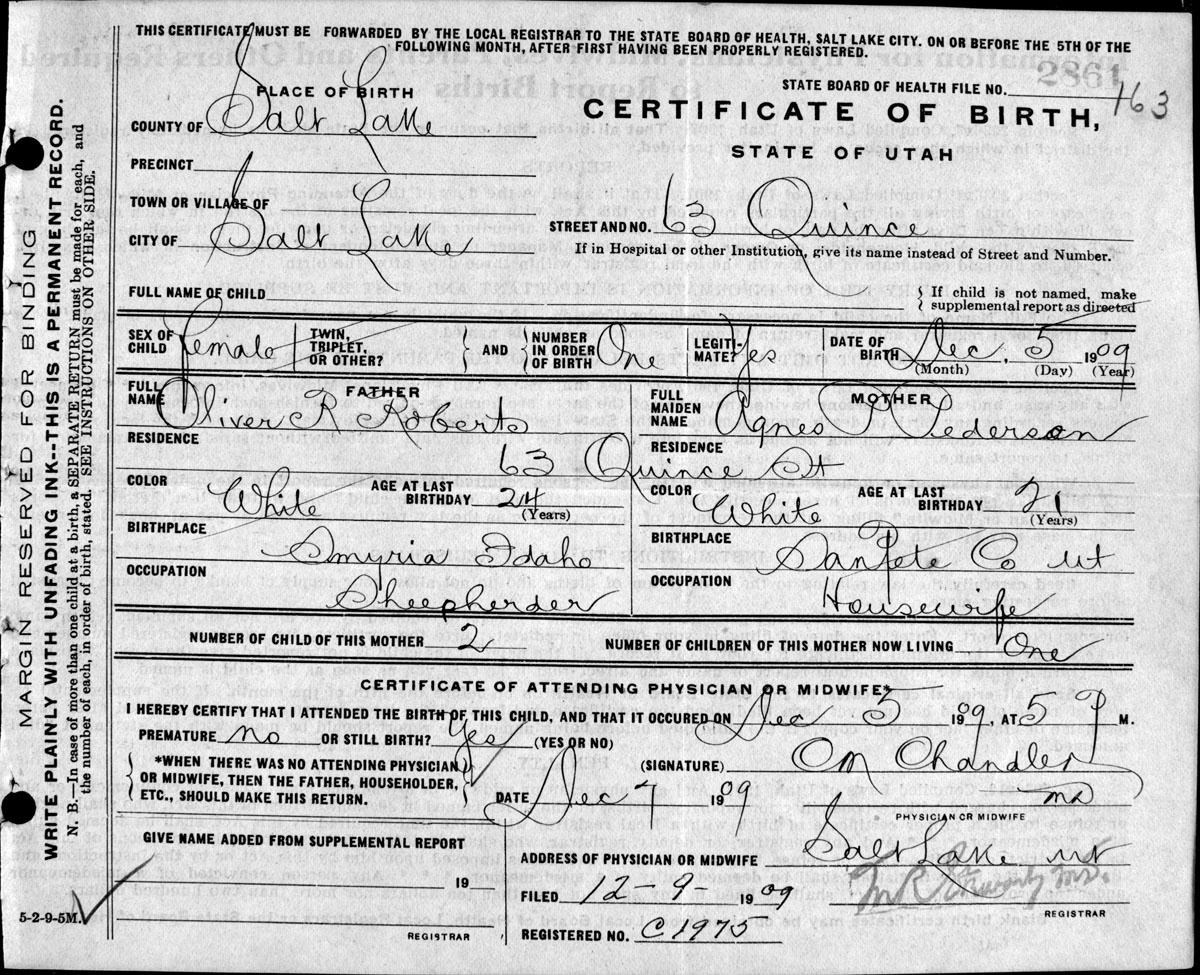 THIS CERTIFICATE MUST BE FORWARDED BY THE LOCAL REGISTRAR TO THE STATE BOARD OF HEALTH, SALT LAKE CITY. ON OR BEFORE THE 5TH OF THE
FOLLOWING MONTH, AFTER FIRST HAVING BEEN PROPERLY REGISTERED.
2861
STATE BOARD OF HEALTH FILE NO. 163
PLACE OF BIRTH
CERTIFICATE OF BIRTH,
STATE OF UTAH
COUNTY OF Salt Lake
PRECINCT
TOWN OR VILLAGE OF
CITY OF Salt Lake
STREET AND NO. 63 Quince
If in Hospital or other Institution, give its name instead of Street and Number.
FULL NAME OF CHILD
If child is not named, make
supplemental report as directed
SEX OF CHILD Female
TWIN, TRIPLET, OR OTHER?
AND
NUMBER IN ORDER OF BIRTH One
LEGITI-MATE? Yes
DATE OF BIRTH Dec. 5 1909
(Month) (Day) (Year)
FATHER
FULL NAME Oliver R Roberts
MOTHER
FULL MAIDEN NAME Agnes Pederson
RESIDENCE
RESIDENCE
63 Quince St
COLOR White AGE AT LAST BIRTHDAY 24
(Years)
COLOR White AGE AT LAST BIRTHDAY 21
(Years)
BIRTHPLACE
Idaho
BIRTHPLACE
SanPete Co ut
OCCUPATION
Sheepherder
OCCUPATION
Housewife
NUMBER OF CHILD OF THIS MOTHER 2
NUMBER OF CHILDREN OF THIS MOTHER NOW LIVING One
CERTIFICATE OF ATTENDING PHYSICIAN OR MIDWIFE*
I HEREBY CERTIFY THAT I ATTENDED THE BIRTH OF THIS CHILD, AND THAT IT OCCURED ON Dec 5 1909, AT 5 P M.
PREMATURE no OR STILL BIRTH? Yes (YES OR NO)
*WHEN THERE WAS NO ATTENDING PHYSICIAN
OR MIDWIFE, THEN THE FATHER, HOUSEHOLDER,
ETC., SHOULD MAKE THIS RETURN.
(SIGNATURE) CM Chandler
DATE Dec 7 1909
MD
PHYSICIAN OR MIDWIFE
GIVE NAME ADDED FROM SUPPLEMENTAL REPORT
19
REGISTRAR
ADDRESS OF PHYSICIAN OR MIDWIFE Salt Lake ut
FILED 12-9 1909
REGISTRAR
REGISTERED NO. C 1975
5-2-9-5M.
MARGIN RESERVED FOR BINDING
WRITE PLAINLY WITH UNFADING INK--THIS IS A PERMANENT RECORD.
N. B.—In case of more than one child at a birth, a SEPARATE RETURN must be made for each, and
the number of each, in order of birth, stated. SEE INSTRUCTIONS ON OTHER SIDE.